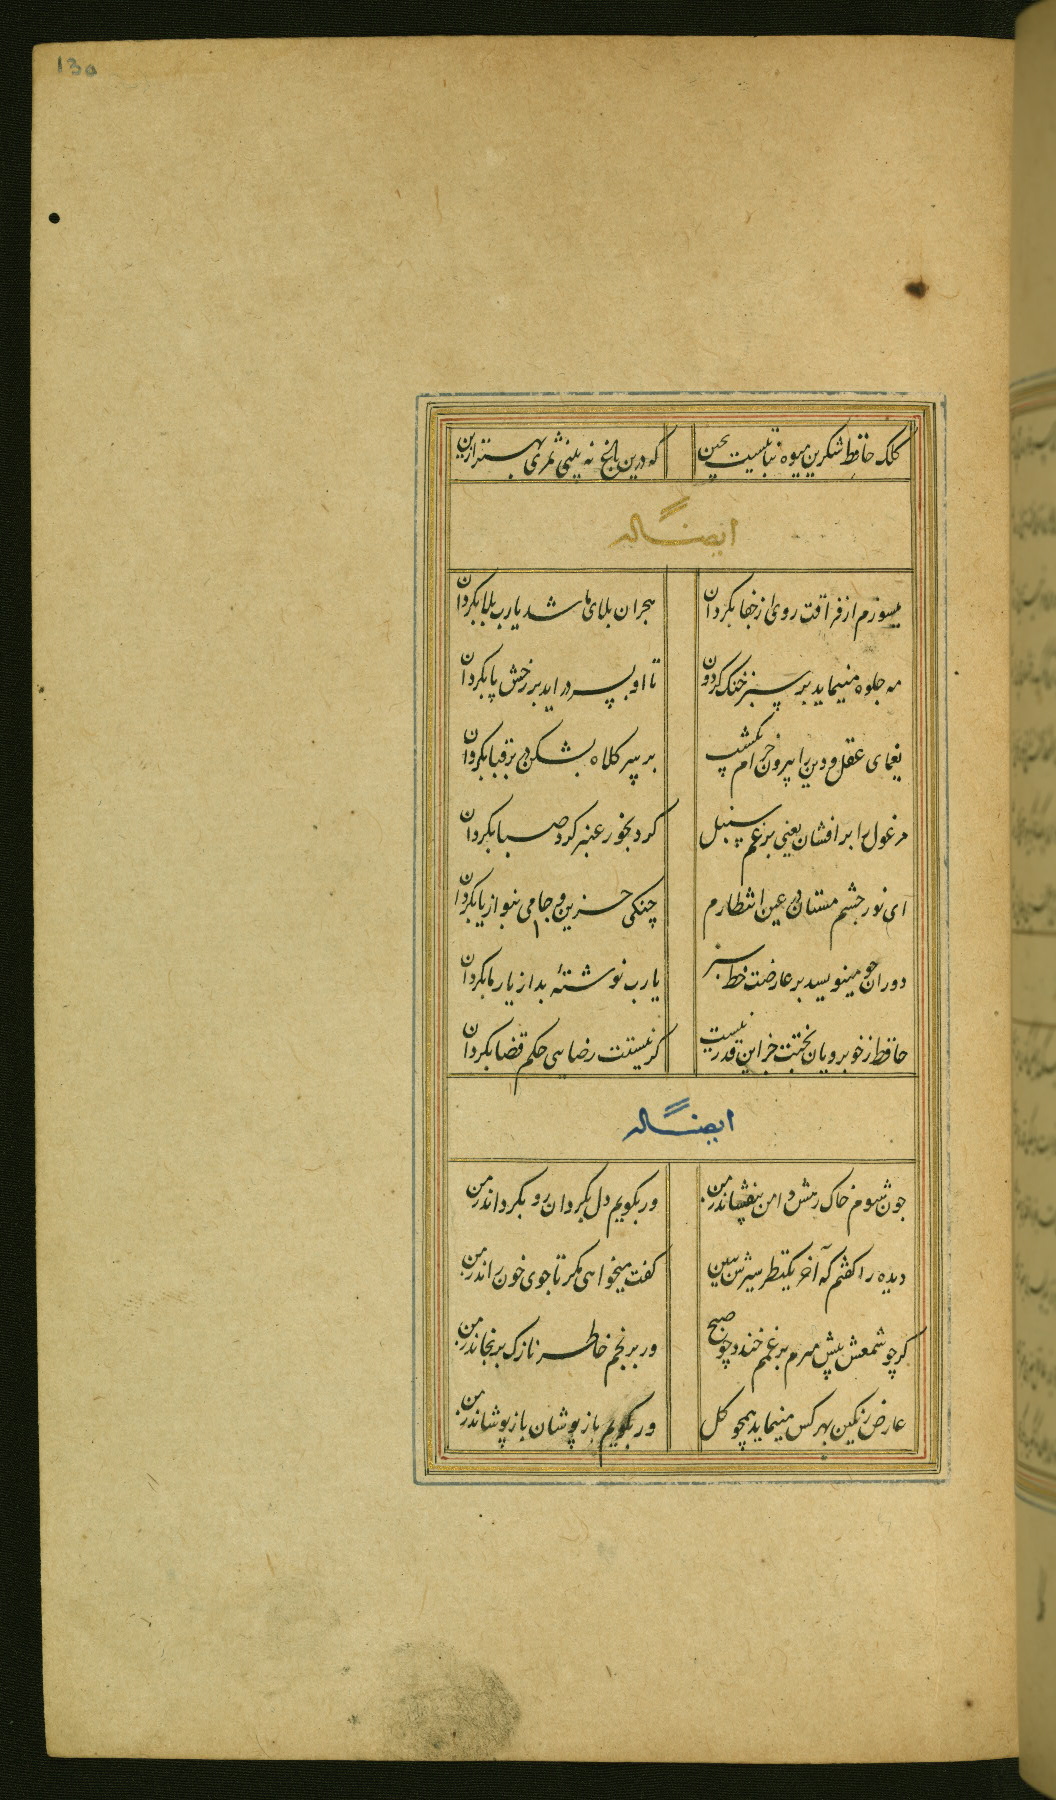 130
کلک حافظ شکرین میوه نباتیست بچین که درین باغ نه بینی ثمری بهتر ازین
ایضا له
میسوزم از فراقت روی از جفا بکردان هجران بلای ما شد یارب بلا بکردان
مه جلوه مینماید بر سبز خنک کردون تا او بسر در اید بر رخش پا بکردان
یغمای عقل و دین را بیرون خرام بر سر کلاه بشکن در بر قبا بکردان
مرغول را برافشان یعنی برغم سنبل کرد بخور عنبر کرد صبا بکردان
ای نور چشم مستان در عین انتظارم چنکی حزین و جامی بنواز یا بکردان
دوران چو مینویسد بر عارضت خط سبز یارب نوشتهٔ بد از یار ما بکردان
حافظ ز خوبرویان بختت جز این قدر نیست کر نیستت رضایی حکم قضا بکردان
ایضا له
چون شوم خاک رهش دامن بیفشاند ز من ور بکویم دل بکردان رو بکرداند ز من
دیده را کفتم که آخر یکنظر سیرش ببین کفت میخواهی مکر تا جوی خون راند ز من
کر چو شمعش پیش میرم بر غمم خندد چو صبح ور برنجم خاطر نازک برنجاند ز من
عارض رنکین بهر کس مینماید همچو کل ور بکویم باز پوشان باز پوشاند ز من